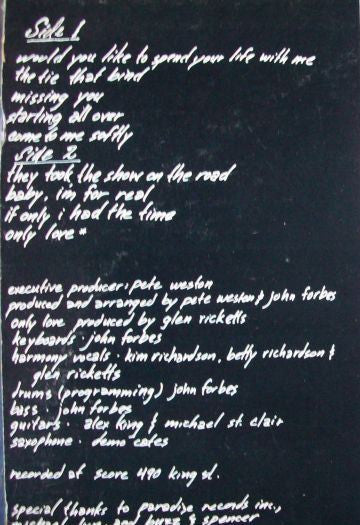 Side 1
would you like to spend your life with me
the tie that bind
missing you
starting all over
come to me softly
Side 2
they took the show on the road
baby, i'm for real
if only i had the time
only love *
executive producer: pete weston
produced and arranged by pete weston & john forbes
only love produced by glen ricketts
keyboards · john forbes
harmony vocals · kim richardson, betty richardson &
glen ricketts
drums (programming) john forbes
bass · john forbes
guitars · alex king & michael st. clair
saxophone · demo cates
recorded at score 490 king st.
special thanks to paradise records inc.,
michael, and buzz & spencer